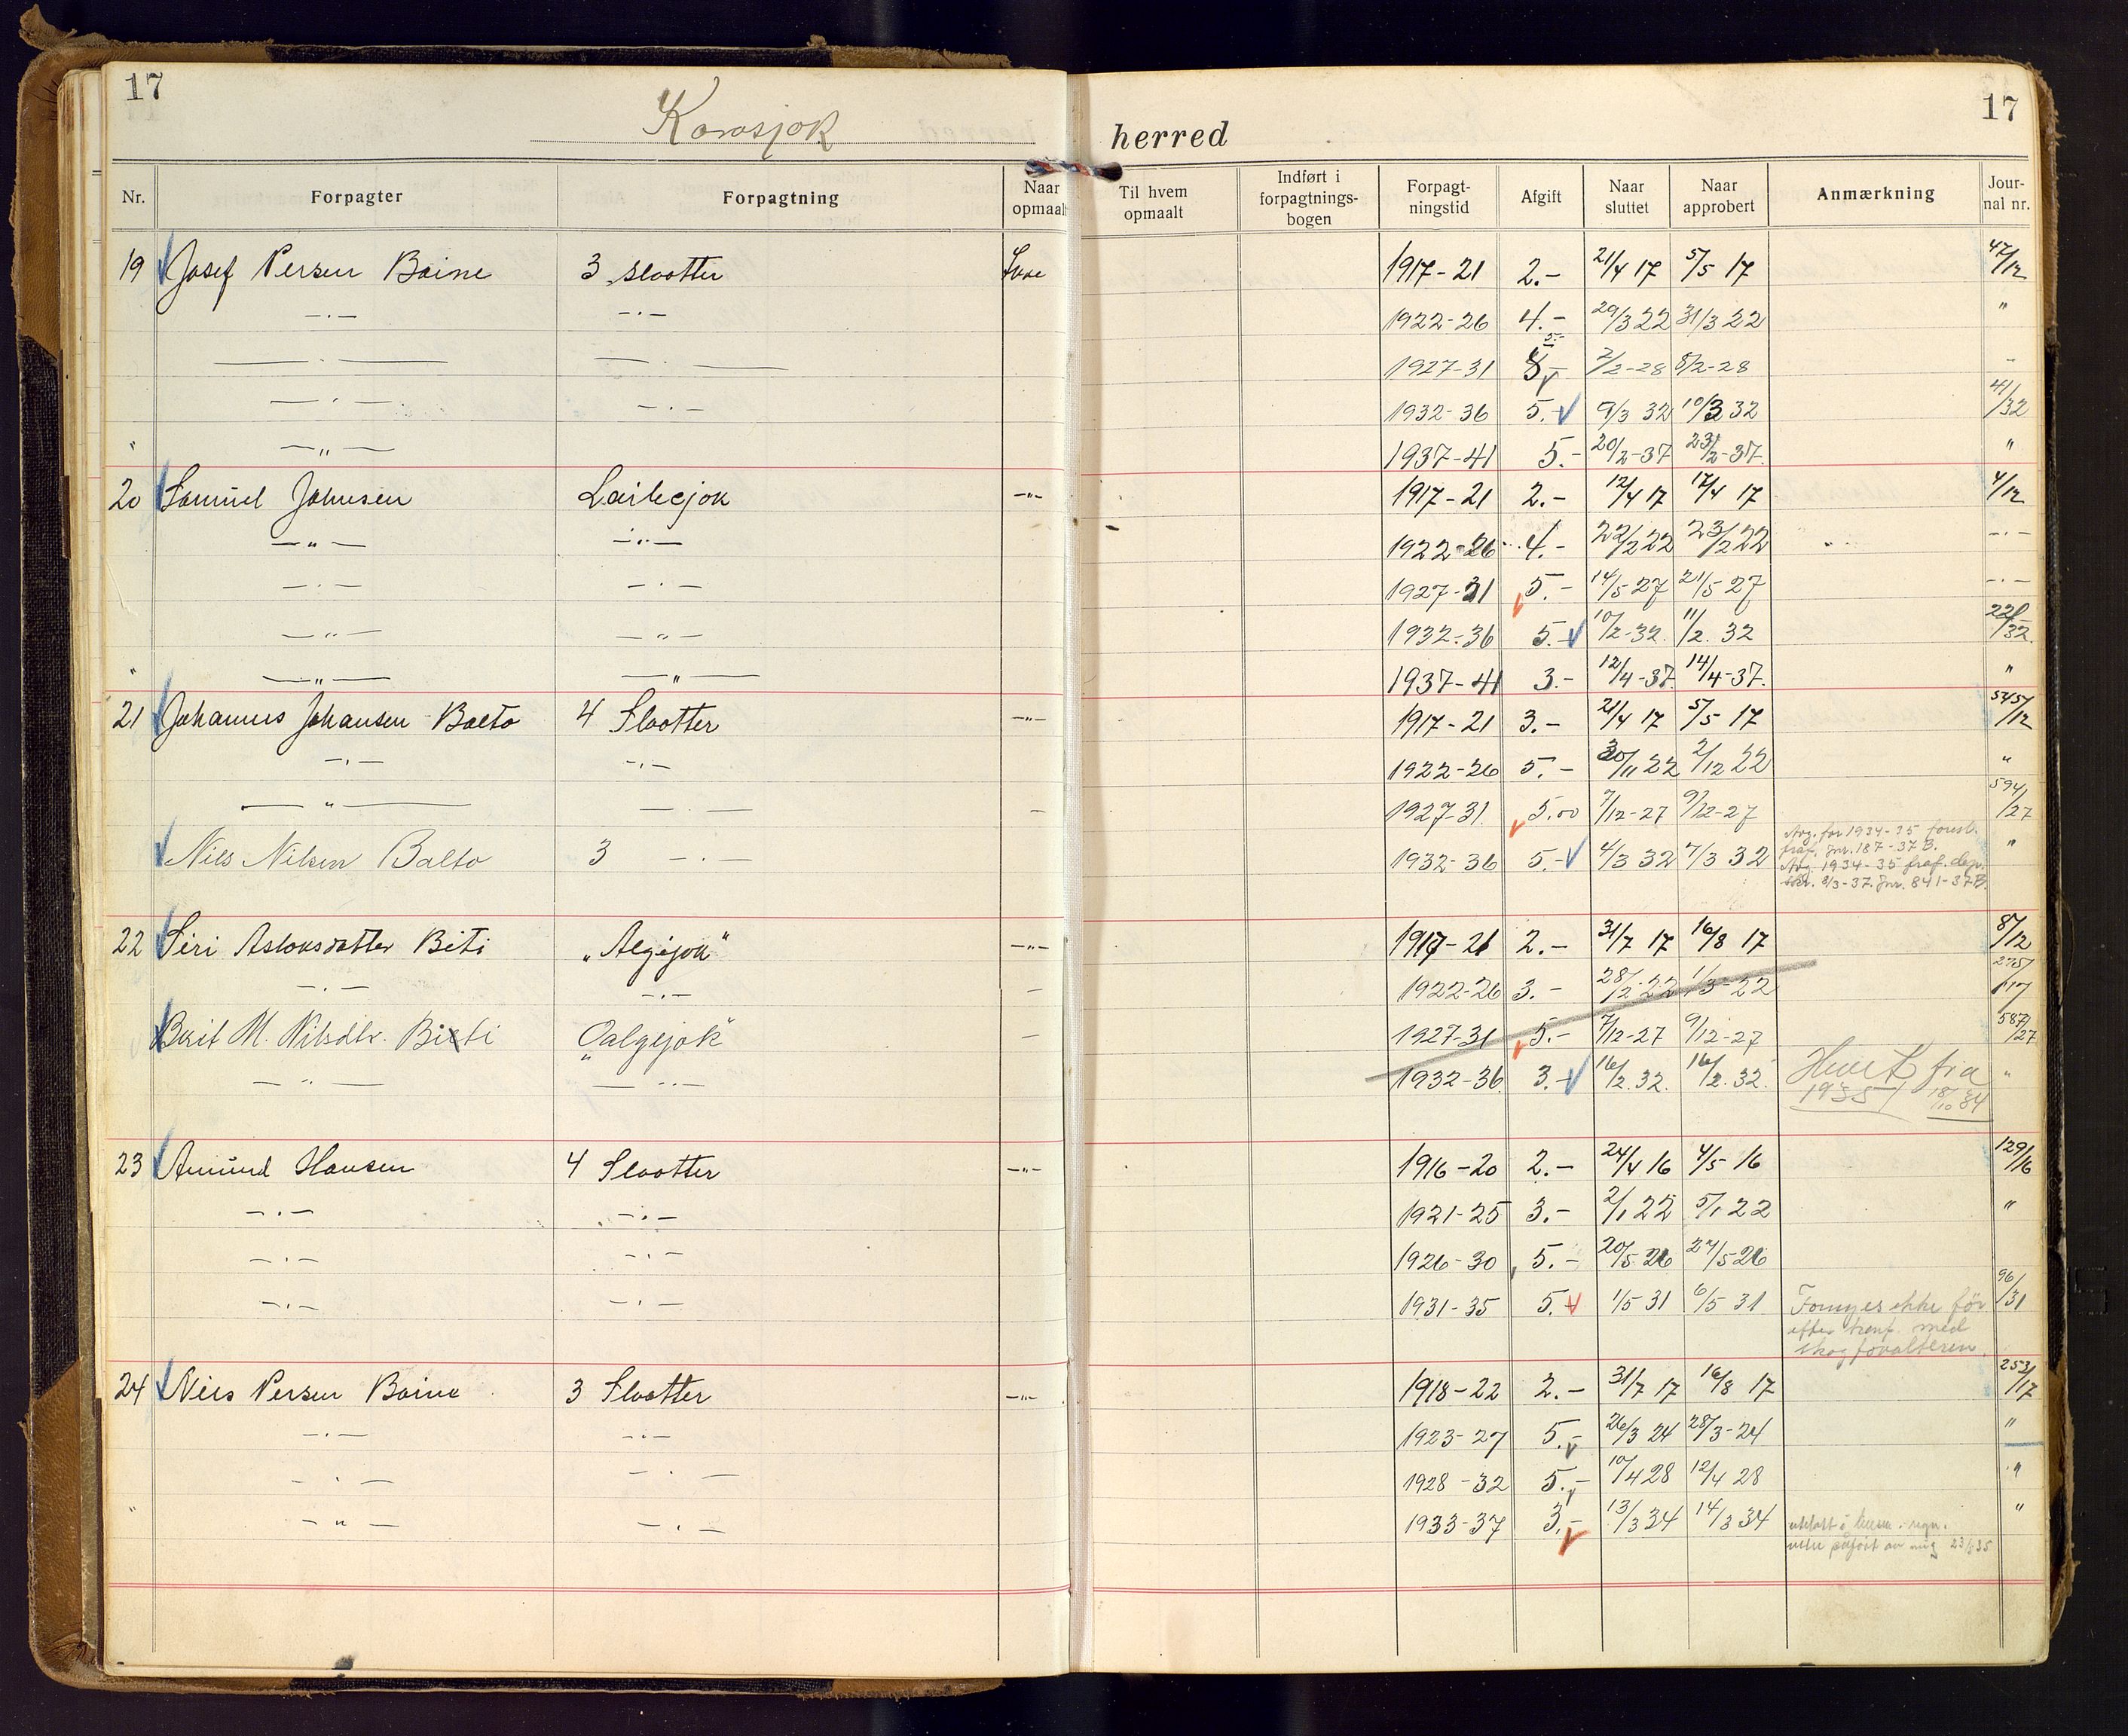 17
17
Karasjok herred
Nr. Forpagter Forpagtning Naar opmaalt Til hvem opmaalt Indført i forpagtnings-bogen Forpagt-ningstid Afgift Naar sluttet Naar approbert Anmærkning Jour-nal nr.
19 Josef Persen Boine 3 slaatter 1917-21 2.- 21/4 17 5/5 17 47/12
—.— —.— 1922-26 4.- 29/3 22 31/3 22 "
—.— —.— 1927-31 5.- 2/2-28 8/2-28 -
—.— —.— 1932-36 5.- 9/3 32 10/3 32 41/32
" —"— 1937-41 5.- 20/2-37 23/2-37. "
20 Samuel Johnsen Laikejok —"— 1917-21 2.- 12/4 17 17/4 17 4/12
—"— —"— 1922-26 4.- 22/2 22 23/2 22 —.—
—.— —.— 1927-31 5.- 14/5 27 21/5 27 —.—
—"— —"— 1932-36 5.- 10/2-32. 11/2. 32 221/32.
" —"— —"— 1937-41 3.- 12/4-37. 14/4-37. "
21 Johannes Johansen Balto 4 Slaatter —"— 1917-21 3.- 21/4 17 5/5 17 54 57/12
—.— —.— 1922-26 5.- 30/11 22 2/12 22 "
—"— —.— - 1927-31. 5.00 7/12-27 9/12-27 594/27
Nils Nilsen Balto 3 —.— 1932-36 5.- 4/3 32 7/3 32 "
Avg. for 1934-35 foresl.
fraf. Jnr. 187-37 B.
Avg. 1934-35 fraf. dep.
skr. 8/3-37. Jnr. 841-37B.
22 Siri Aslaksdatter Biti "Algejok" —"— 1917-21 2.- 31/7 17 16/8 17 87/12
—.— —.— - 1922-26 3.- 28/2-22 1/3-22 275/17
Berit M. Nilsdtr. Biti "Oalgejok" - 1927-31 5.- 7/12-27 9/12-27 587/27
—"— —"— 1932-36 3.- 16/2. 32. 16/2. 32. "
Hevet fra
1935 18/10 34
23 Amund Hansen 4 Slaatter —"— 1916-20 2.- 24/4 16 4/5 16 129/16
—.— —.— 1921-25 3.- 2/1 22 5/1 22 "
—.— —.— 1926-30 5.- 20/5 26 27/5-26
—.— —.— 1931-35 5.- 1/5 31 6/5 31 96/31
Fornyes ikke før
efter konf. med
skogforvalteren.
24 Niels Persen Boine 3 Slaatter —"— 1918-22 2.- 31/7 17 16/8 17 253/17
—.— —.— 1923-27 5.- 26/3 24 28/3-24 "
—.— —.— 1928-32 5.- 10/4 28 12/4 28 "
" —"— —.— 1933-37 3.- 13/3 34 14/3 34 "
utelatt i